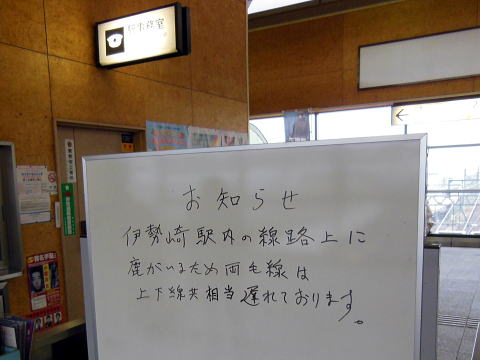 駅事務室
お知らせ
伊勢崎駅内の線路上に
鹿がいるため両毛線は
上下線共相当遅れております。